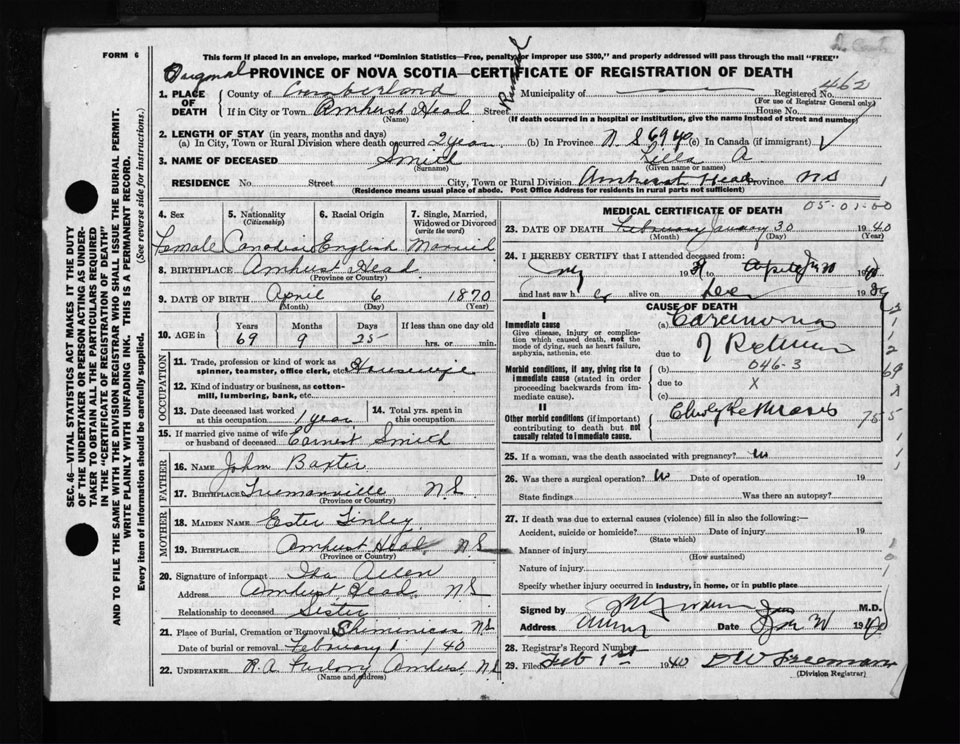 N. Scotia
FORM 6
This form if placed in an envelope, marked "Dominion Statistics—Free, penalty for improper use $300," and properly addressed will pass through the mail "FREE"
Original PROVINCE OF NOVA SCOTIA—CERTIFICATE OF REGISTRATION OF DEATH
1. PLACE OF DEATH County of Cumberland Municipality of Registered No. 462
(For use of Registrar General only)
If in City or Town Amherst Head Street Rural House No.
(Name) (If death occurred in a hospital or institution, give the name instead of street and number)
2. LENGTH OF STAY (in years, months and days)
(a) In City, Town or Rural Division where death occurred 2 year (b) In Province N S 69 (c) In Canada (if immigrant)
3. NAME OF DECEASED Smith Lilla A
(Surname) (Given name or names)
RESIDENCE No. Street City, Town or Rural Division Amherst Head Province N S 1
(Residence means usual place of abode. Post Office Address for residents in rural parts not sufficient)
SEC. 46—VITAL STATISTICS ACT MAKES IT THE DUTY
OF THE UNDERTAKER OR PERSON ACTING AS UNDER-
TAKER TO OBTAIN ALL THE PARTICULARS REQUIRED
IN THE "CERTIFICATE OF REGISTRATION OF DEATH"
AND TO FILE THE SAME WITH THE DIVISION REGISTRAR WHO SHALL ISSUE THE BURIAL PERMIT.
WRITE PLAINLY WITH UNFADING INK. THIS IS A PERMANENT RECORD.
Every item of information should be carefully supplied. (See reverse side for instructions.)
4. Sex 5. Nationality (Citizenship) 6. Racial Origin 7. Single, Married, Widowed or Divorced (write the word)
Female Canadian English Married
8. BIRTHPLACE Amherst Head
(Province or Country)
9. DATE OF BIRTH April 6 1870
(Month) (Day) (Year)
10. AGE in Years Months Days If less than one day old
69 9 25 hrs. or min.
OCCUPATION
11. Trade, profession or kind of work as spinner, teamster, office clerk, etc. Housewife
12. Kind of industry or business, as cotton-mill, lumbering, bank, etc.
13. Date deceased last worked at this occupation 1 year 14. Total yrs. spent in this occupation
15. If married give name of wife or husband of deceased Earnest Smith
FATHER
16. NAME John Baxter
17. BIRTHPLACE Truemanville N.S.
(Province or Country)
MOTHER
18. MAIDEN NAME Ester Finley
19. BIRTHPLACE Amherst Head N.S
(Province or Country)
20. Signature of informant Ida Allen
Address Amherst Head N S
Relationship to deceased Sister
21. Place of Burial, Cremation or Removal Shiminicas N.S
Date of burial or removal February 1 / 40
22. UNDERTAKER R. A. Furlong Amherst N.S
(Name and address)
MEDICAL CERTIFICATE OF DEATH 05-01-00
23. DATE OF DEATH February January 30 1940
(Month) (Day) (Year)
24. I HEREBY CERTIFY that I attended deceased from:
July 1939 to 1940
and last saw her alive on Dec 1939
CAUSE OF DEATH
I
Immediate cause
Give disease, injury or complication which caused death, not the mode of dying, such as heart failure, asphyxia, asthenia, etc
(a) Carcinoma
due to of Rectum
Morbid conditions, if any, giving rise to immediate cause (stated in order proceeding backwards from immediate cause).
(b) 046-3
due to X
(c)
II
Other morbid conditions (if important) contributing to death but not causally related to immediate cause.
25. If a woman, was the death associated with pregnancy?
26. Was there a surgical operation? Date of operation 19
State findings Was there an autopsy?
27. If death was due to external causes (violence) fill in also the following:—
Accident, suicide or homicide? Date of injury 19
(State which)
Manner of injury
(How sustained)
Nature of injury
Specify whether injury occurred in industry, in home, or in public place
Signed by M.D.
Address Date Jan 1940
28. Registrar's Record Number
29. Filed Feb 1st 1940 D W Freeman
(Division Registrar)